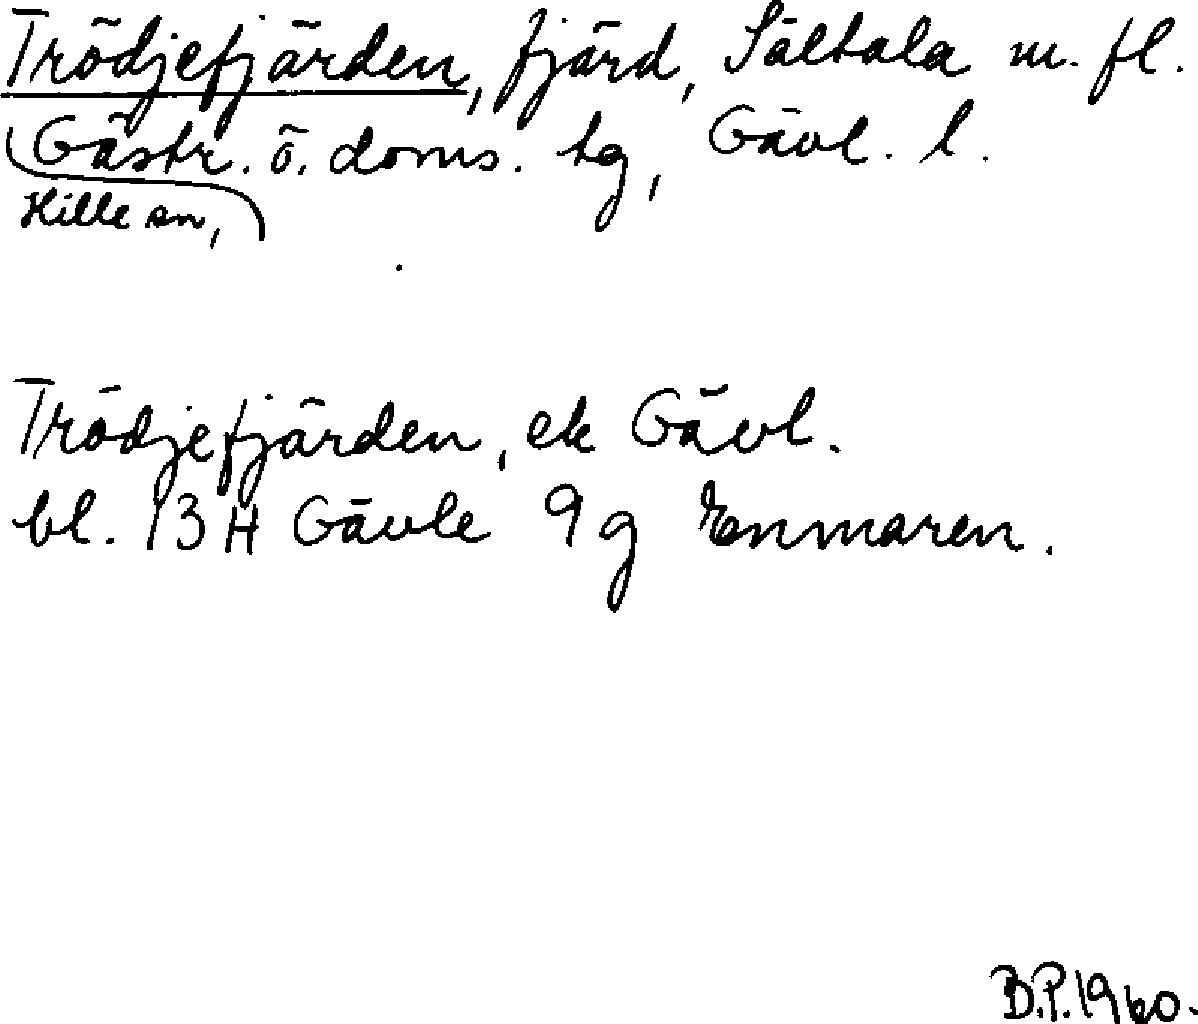 Trödjefjärden, fjärd, Sältala m. fl.
Gästr. ö. doms. tg, Gävl. l.
Hille sn,
Trödjefjärden, ek Gävl.
bl. 13 H Gävle 9 g Enmaren.
B.P. 1960.